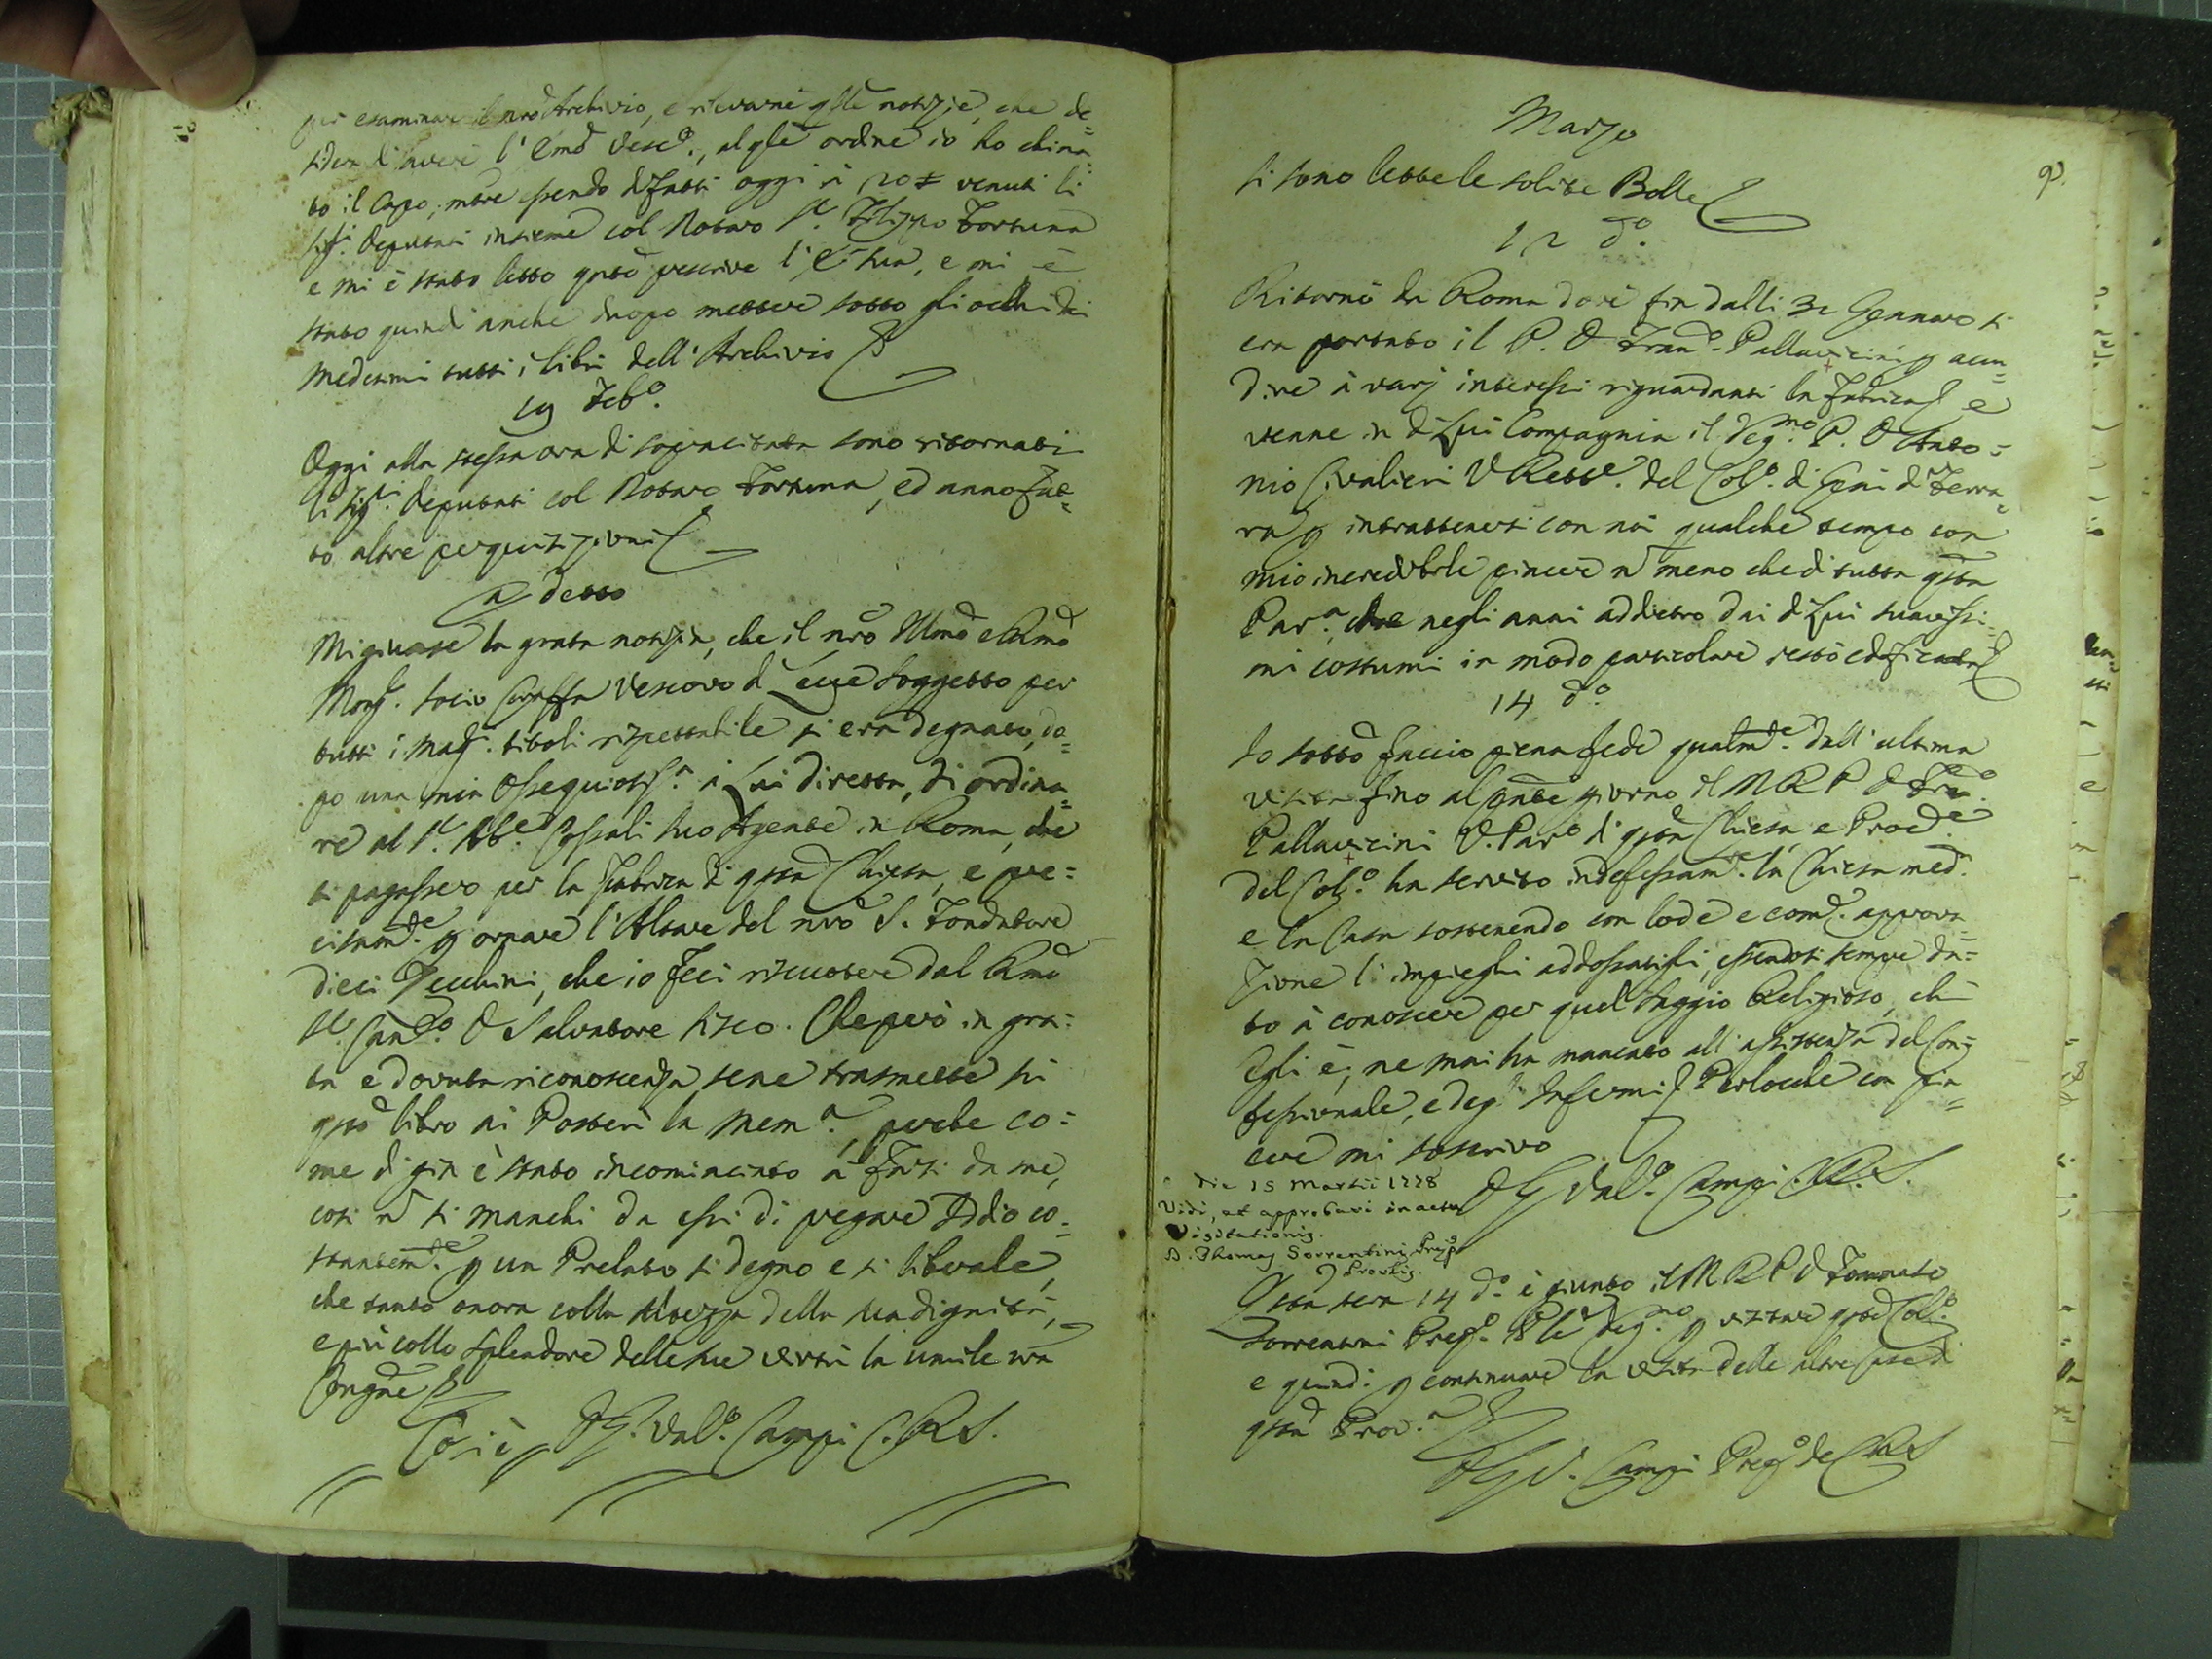 per esaminare il nr̃o Archivio, e rilevarne q̃lle notizie, che de=
sidera d'avere l'Em̃o Vesc.º, al q̃le ordine io ho china=
to il Capo; mtre essendo difatti oggi à 20 venuti li
Sig.ri Deputati insieme col Notaro S.r Filippo Fortuna
e mi è stato letto q̃nto prescrive l'E. Sua, e mi è
stato quindi anche duopo mettere sotto gli occhi dei
medesimi tutti i libri dell'Archivio
19 Feb.º
Oggi alla stessa ora di sopracitata sono ritornati
li Sig.ri Deputati col Notaro Fortuna, ed anno fat=
to altre perquisizioni
detto
Mi giunse la grata notizia, che il nr̃o Ill̃mo e R̃mo
Mons.r Sozio Caraffa Vescovo di Lecce soggetto per
tutti i magg.ri titoli rispettabile si era degnato, do=
po una mia Ossequiosiss.a à Lui diretta, di ordina=
re al S.r Ab.e Cassali suo Agente in Roma, che
si pagassero per la fabrica di q̃sta Chiesa, e pre=
cisam.te p ornare l'Altare del nr̃o S. Fondatore
dieci Zecchini, che io feci riscuotere dal R̃mo
S.r Can.co D Salvatore Sisco. Che però in gra=
ta e dovuta riconoscenza sene trasmette in
q̃sto libro ai Posteri la mem.a, perche co=
me di già è stato incominciato à farsi da me,
così ñ si manchi da essi di pregare Iddio co=
stantem.te p un Prelato si degno e si liberale,
che tanto onora colla Altezza della sua dignità,
e più collo splendore delle sue virtù la umile nr̃a
Congne
Cosi è D G. Val.º Campi C.R.S.
Marzo
9.
Si sono lette le solite Bolle
12 d.º
Ritornò da Roma dove fin dalli 31 Gennaro si
era portato il P. D Fran.º Pallavicini p acu=
dire à varj interessi riguardanti la fabrica e
venne in di Lui Compagnia il deg.mo P. D Anto=
nio Civalieri V Rett.e del Col.º di Gesù di Ferra=
ra p intrattenersi con noi qualche tempo con
mio incredibile piacere ñ meno che di tutta q̃sta
Par.a, che negli anni addietro dai di Lui savissi=
mi costumi in modo particolare restò edificata
14 d.º
Io sottõ faccio piena fede qualm.te dall'ultima
visita fino al p̃nte giorno il M R P D Fran.º
Pallavicini V. Par.º di q̃sta Chiesa, e Proc.e
del Col.º ha servito indefessam.te la Chiesa med.a
e la Casa sostenendo con lode e com.e approva=
zione l'impieghi addossatisli, essendosi sempre da=
to à conoscere per quel saggio Religioso, che
Egli è; ne mai ha mancato all'assistenza del Con=
fessionale, e deg.li Infermi Perlocchè con pia=
cere mi soscrivo
D G Val.º Campi C.R.S.
die 15 Martii 1778
Vidi, et approbavi in actu
Visitationis.
D. Thomas Sorrentini Prep.s
Provlis.
Q̃sta sera 14 d.º è giunto il M R P D Tommaso
Sorrentini Prep.º P̃le deg.mo p visitare q̃sto Col.º
e quindi p continuare la visita delle altre case di
q̃sta Prov.a
D G V. Campi Prep.º de CRS